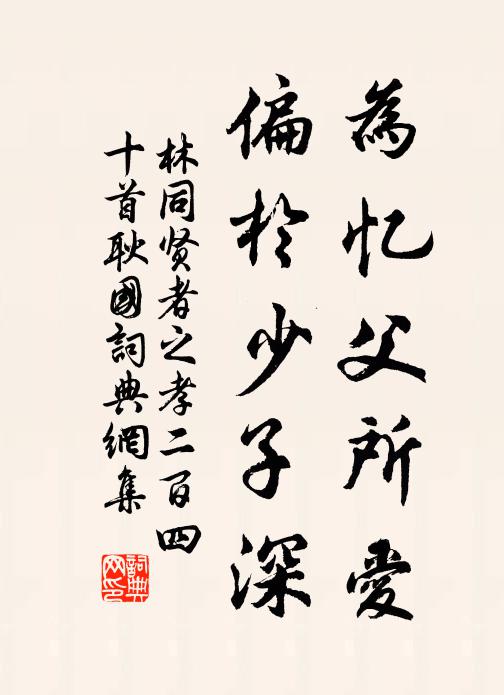 為忆父所愛
偏於少子深
林同贤者之孝二百四
十首耿國詞典網集
詞典
网印